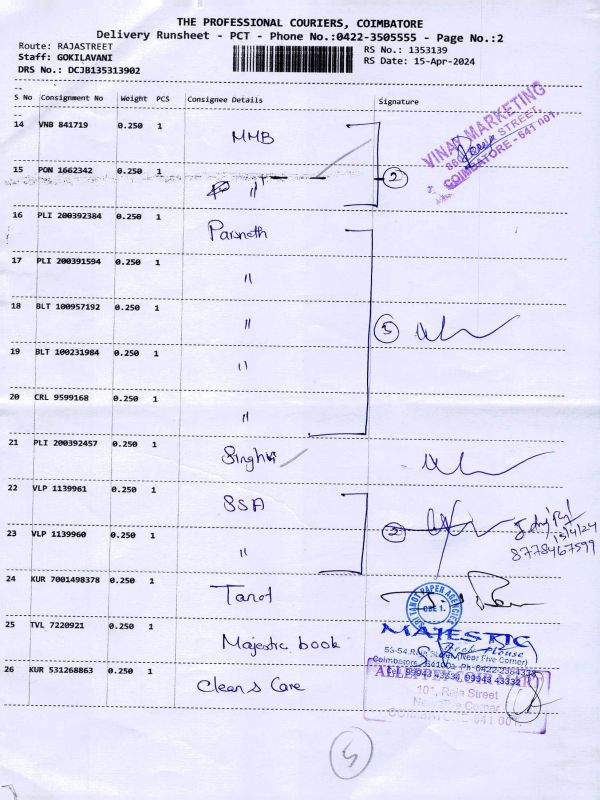 THE PROFESSIONAL COURIERS, COIMBATORE
Delivery Runsheet - PCT - Phone No.:0422-3505555 - Page No.:2
Route: RAJASTREET
RS No.: 1353139
Staff: GOKILAVANI
RS Date: 15-Apr-2024
DRS No.: DCJB135313902
S No Consignment No Weight PCS Consignee Details Signature
14 VNB 841719 0.250 1 MMB
VINAR MARKETING
STREET,
COIMBATORE - 641 001.
15 PON 1662342 0.250 1 " 2
16 PLI 200392384 0.250 1 Parsnath
17 PLI 200391594 0.250 1 "
18 BLT 100957192 0.250 1 " 5
19 BLT 100231984 0.250 1 "
20 CRL 9599168 0.250 1 "
21 PLI 200392457 0.250 1 Singhvi
22 VLP 1139961 0.250 1 SSA
2
15/4/24
8778467599
23 VLP 1139960 0.250 1 "
24 KUR 7001498378 0.250 1 Tanot
SRI TANOT PAPER AGENCIES
CBE 1.
25 TVL 7220921 0.250 1 Majestic book
MAJESTIC
Book House
53-54, Raja Street (Near Five Corner)
26 KUR 531268863 0.250 1 Clean & Care
101, Raja Street
Near Five Corner
COIMBATORE-641 001.
5